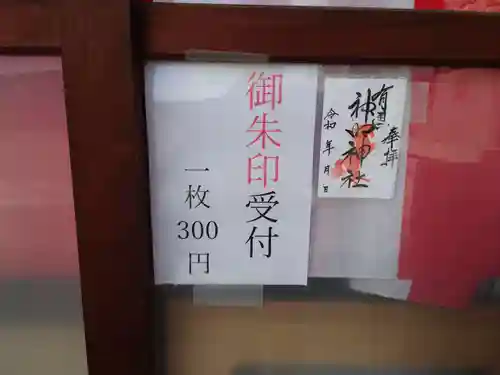 御朱印受付
一枚
300
円
奉拝
神明神社
令和 年 月 日